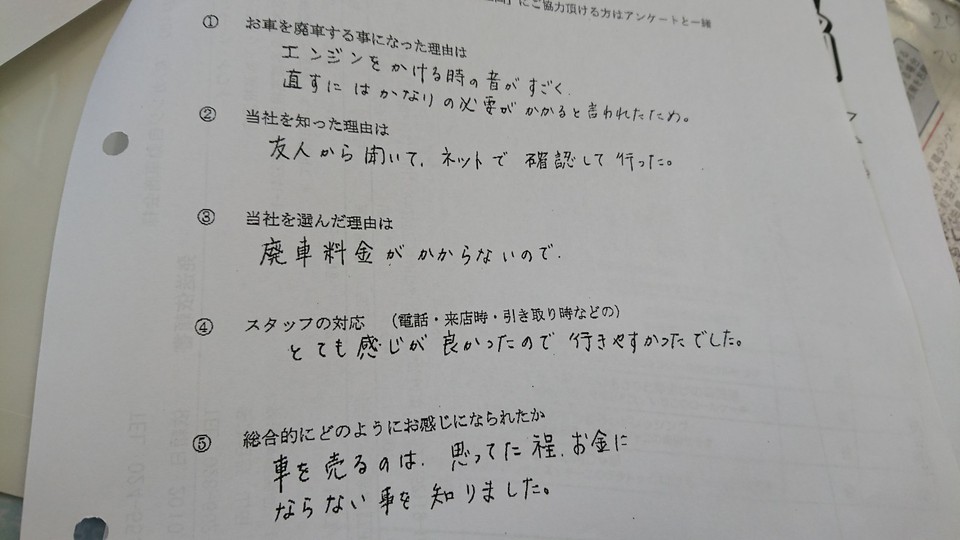 にご協力頂ける方はアンケートと一緒
① お車を廃車する事になった理由は
エンジンをかける時の音がすごく、
直すにはかなりの必要がかかると言われたため。
② 当社を知った理由は
友人から聞いて、ネットで確認して行った。
③ 当社を選んだ理由は
廃車料金がかからないので、
④ スタッフの対応 （電話・来店時・引き取り時などの）
とても感じが良かったので行きやすかったでした。
⑤ 総合的にどのようにお感じになられたか
車を売るのは、思ってた程、お金に
ならない事を知りました。